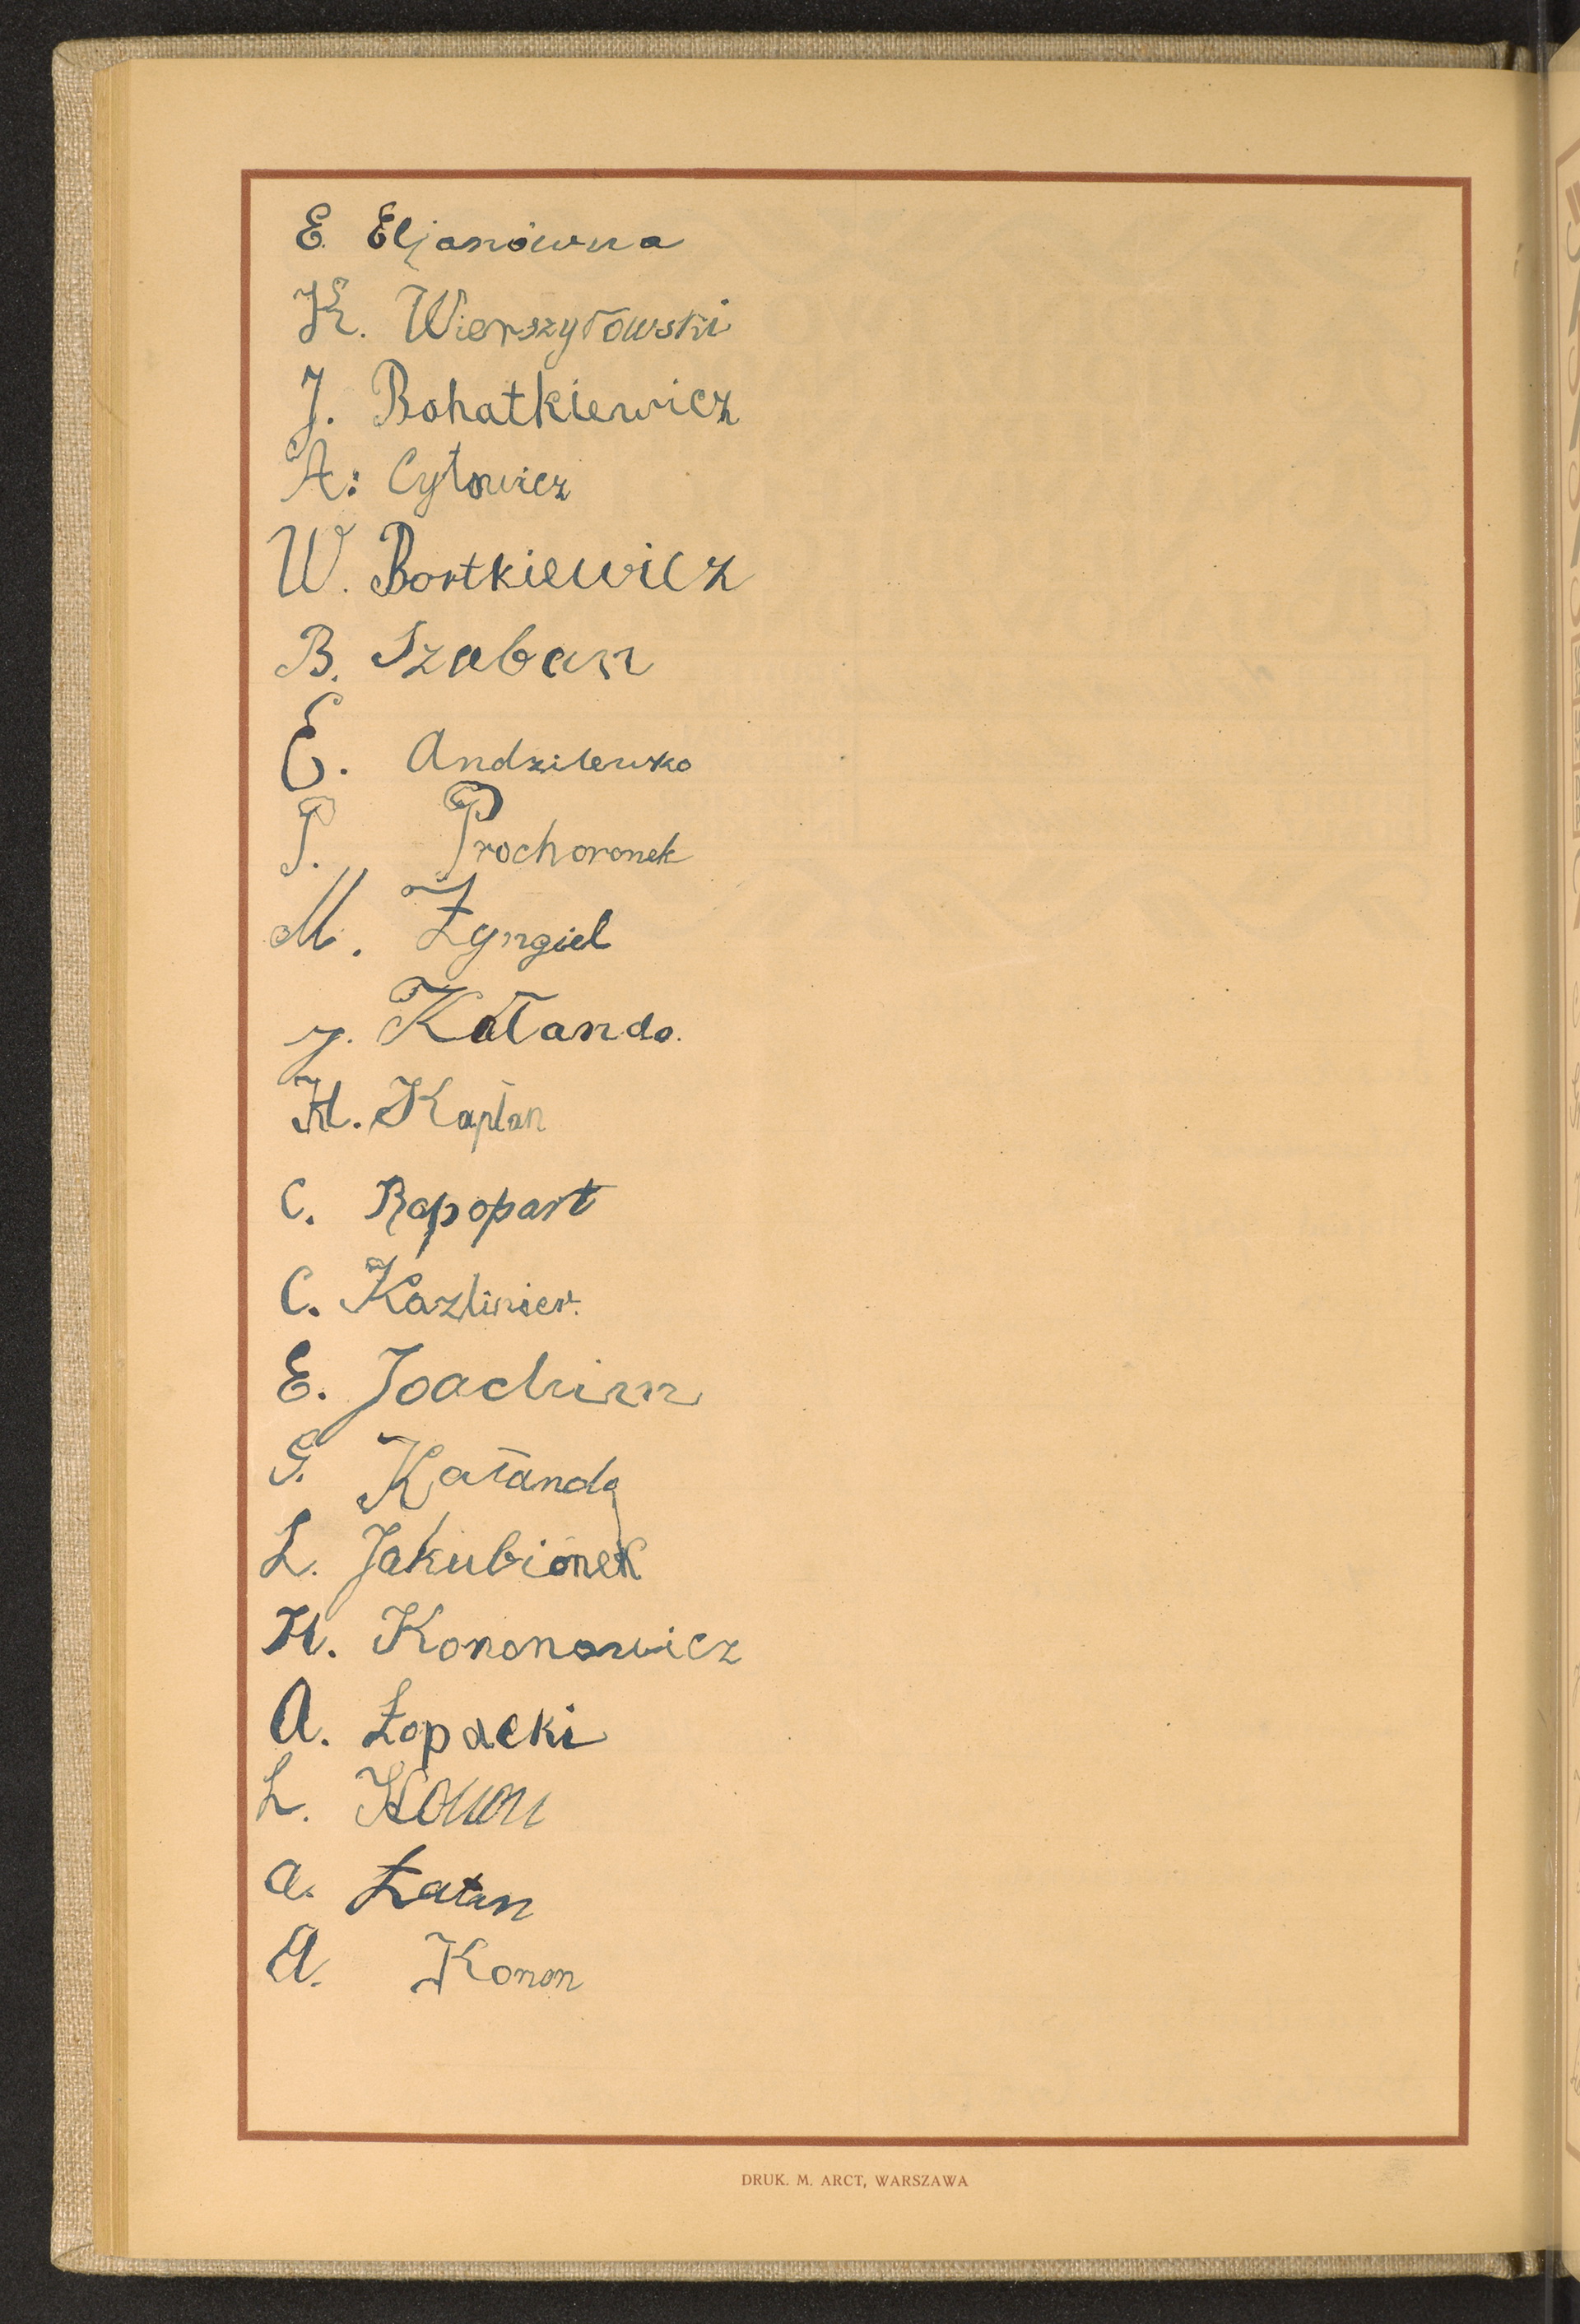 E. Eljanówna
K. Wierszyłowski
J. Bohatkiewicz
A. Cytowicz
W. Bortkiewicz
B. Szaban
E. Andzilewko
P. Prochoronek
M. Żyngiel
J. Kałando.
H. Kapłan
C. Rapoport
C. Kazliner.
E. Joachim
G. Kałanda
L. Jakubionek
H. Kononowicz
A. Łopacki
L. Konon
A. Łatan
A. Konon
DRUK. M. ARCT, WARSZAWA